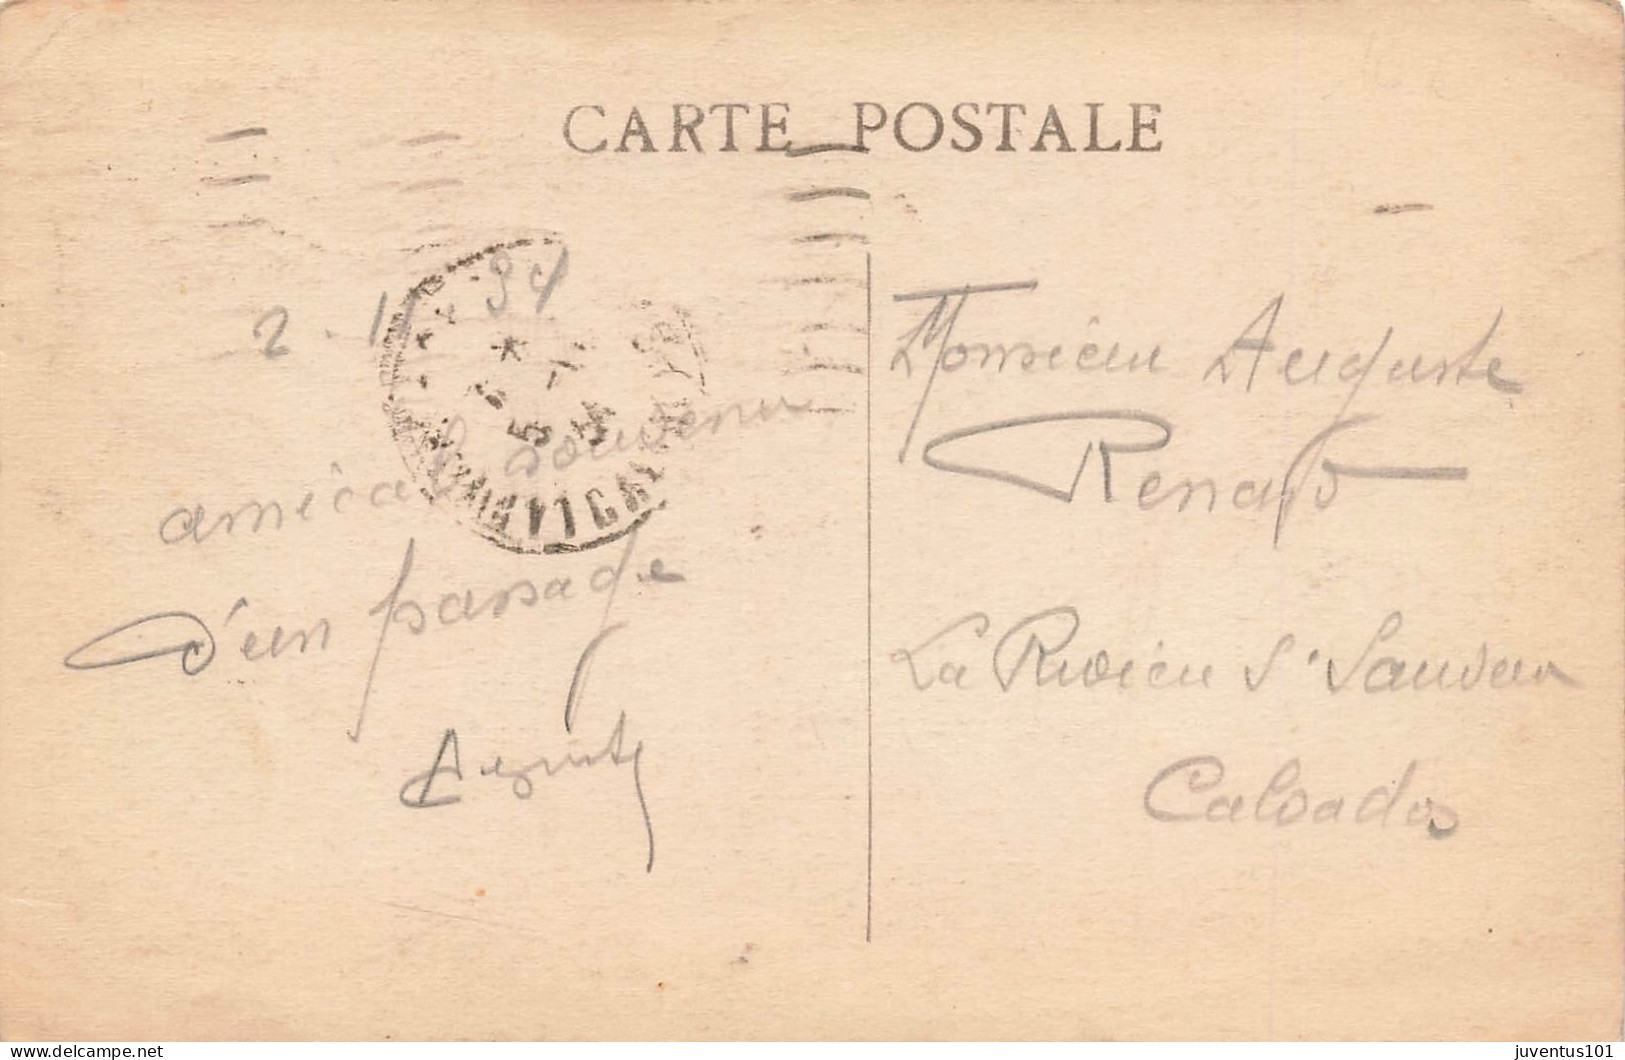 CARTE POSTALE
2 - 11 - 34
amical souvenir
d'un passage
Auguste
Monsieur Auguste
Renard
La Rivière St Sauveur
Calvados
juventus101